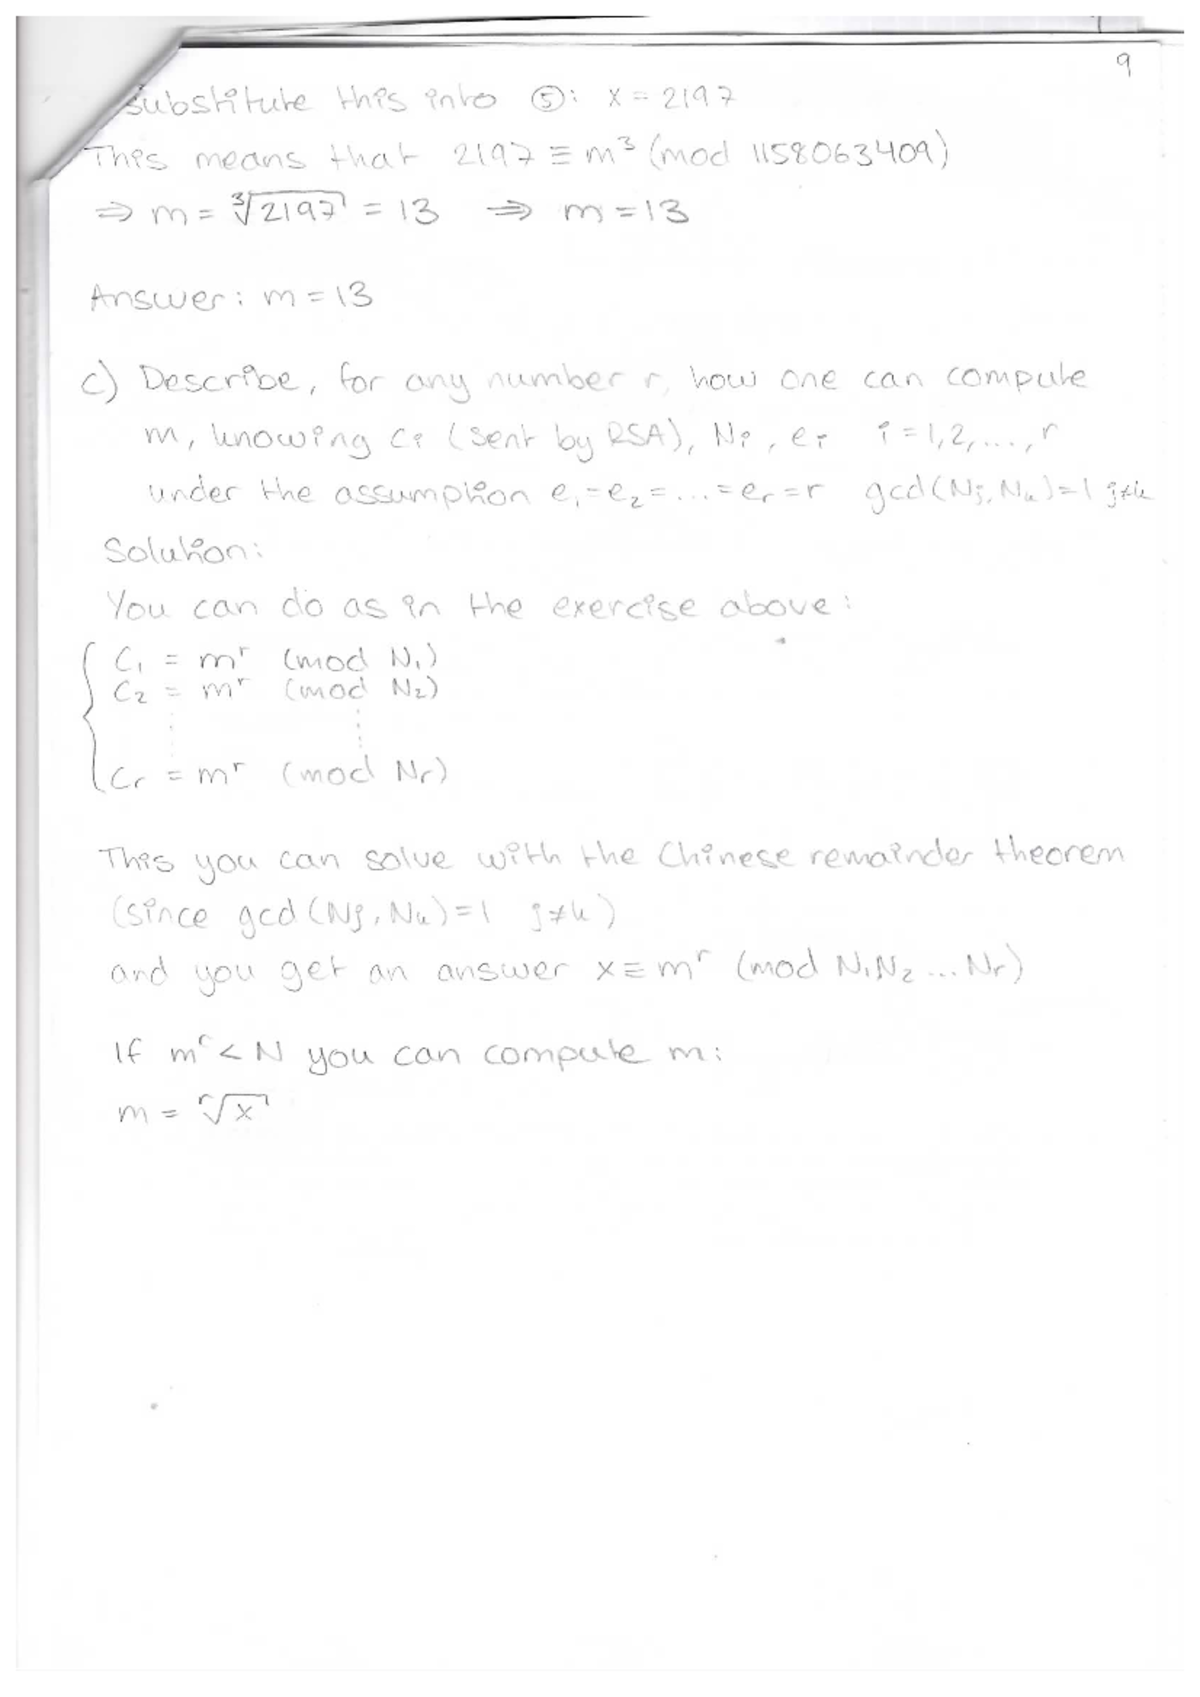 9
Substitute this into ⑤: x = 2197
This means that 2197 ≡ m³ (mod 1158063409)
⇒ m = ∛2197 = 13 ⇒ m = 13
Answer: m = 13
c) Describe, for any number r, how one can compute
m, knowing cᵢ (sent by RSA), Nᵢ, eᵢ i = 1,2,...,r
under the assumption e₁=e₂=...=eᵣ=r gcd(Nⱼ,Nₖ)=1 j≠k
Solution:
You can do as in the exercise above:
C₁ = mʳ (mod N₁)
C₂ = mʳ (mod N₂)
Cᵣ = mʳ (mod Nᵣ)
This you can solve with the Chinese remainder theorem
(since gcd(Nⱼ,Nₖ)=1 j≠k)
and you get an answer x ≡ mʳ (mod N₁N₂...Nᵣ)
If mʳ < N you can compute m:
m = ʳ√x